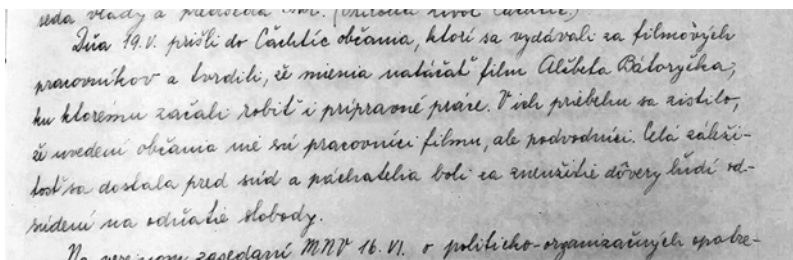 seda vlády a predseda
Dňa 19.V. prišli do Čachtíc občania, ktorí sa vydávali za filmových
pracovníkov a tvrdili, že mienia natáčať film Alžbeta Bátoryčka,
ku ktorému začali robiť i prípravné práce. V ich priebehu sa zistilo,
že uvedení občania nie sú pracovníci filmu, ale podvodníci. Celá záleži-
tosť sa dostala pred súd a páchatelia boli za zneužitie dôvery ľudí od-
súdení na odňatie slobody.
Na verejnom zasedaní MNV 16.VI. o politicko-organizačných opatre-